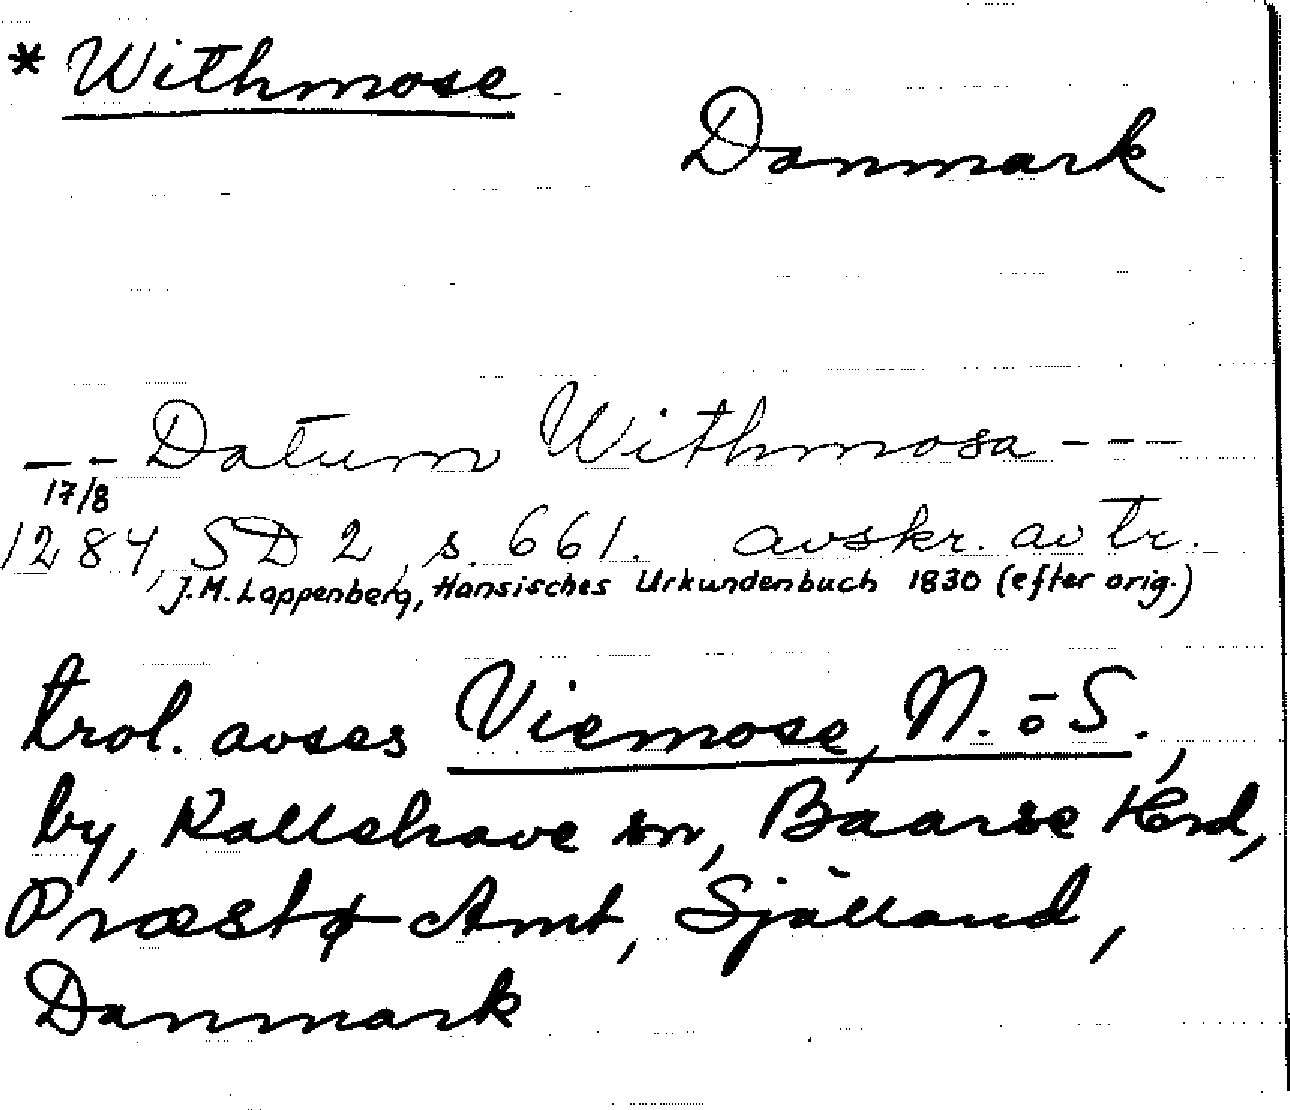 * Withmose
Danmark
--- Datum Withmosa ---
17/8
1284, SD 2, s. 661. avskr. av tr.
J.M. Lappenberg, Hansisches Urkundenbuch 1830 (efter orig.)
trol. avses Viemose, N. o S.,
by, Kallehave sn, Baarse Hrd,
Præstø Amt, Själland,
Danmark